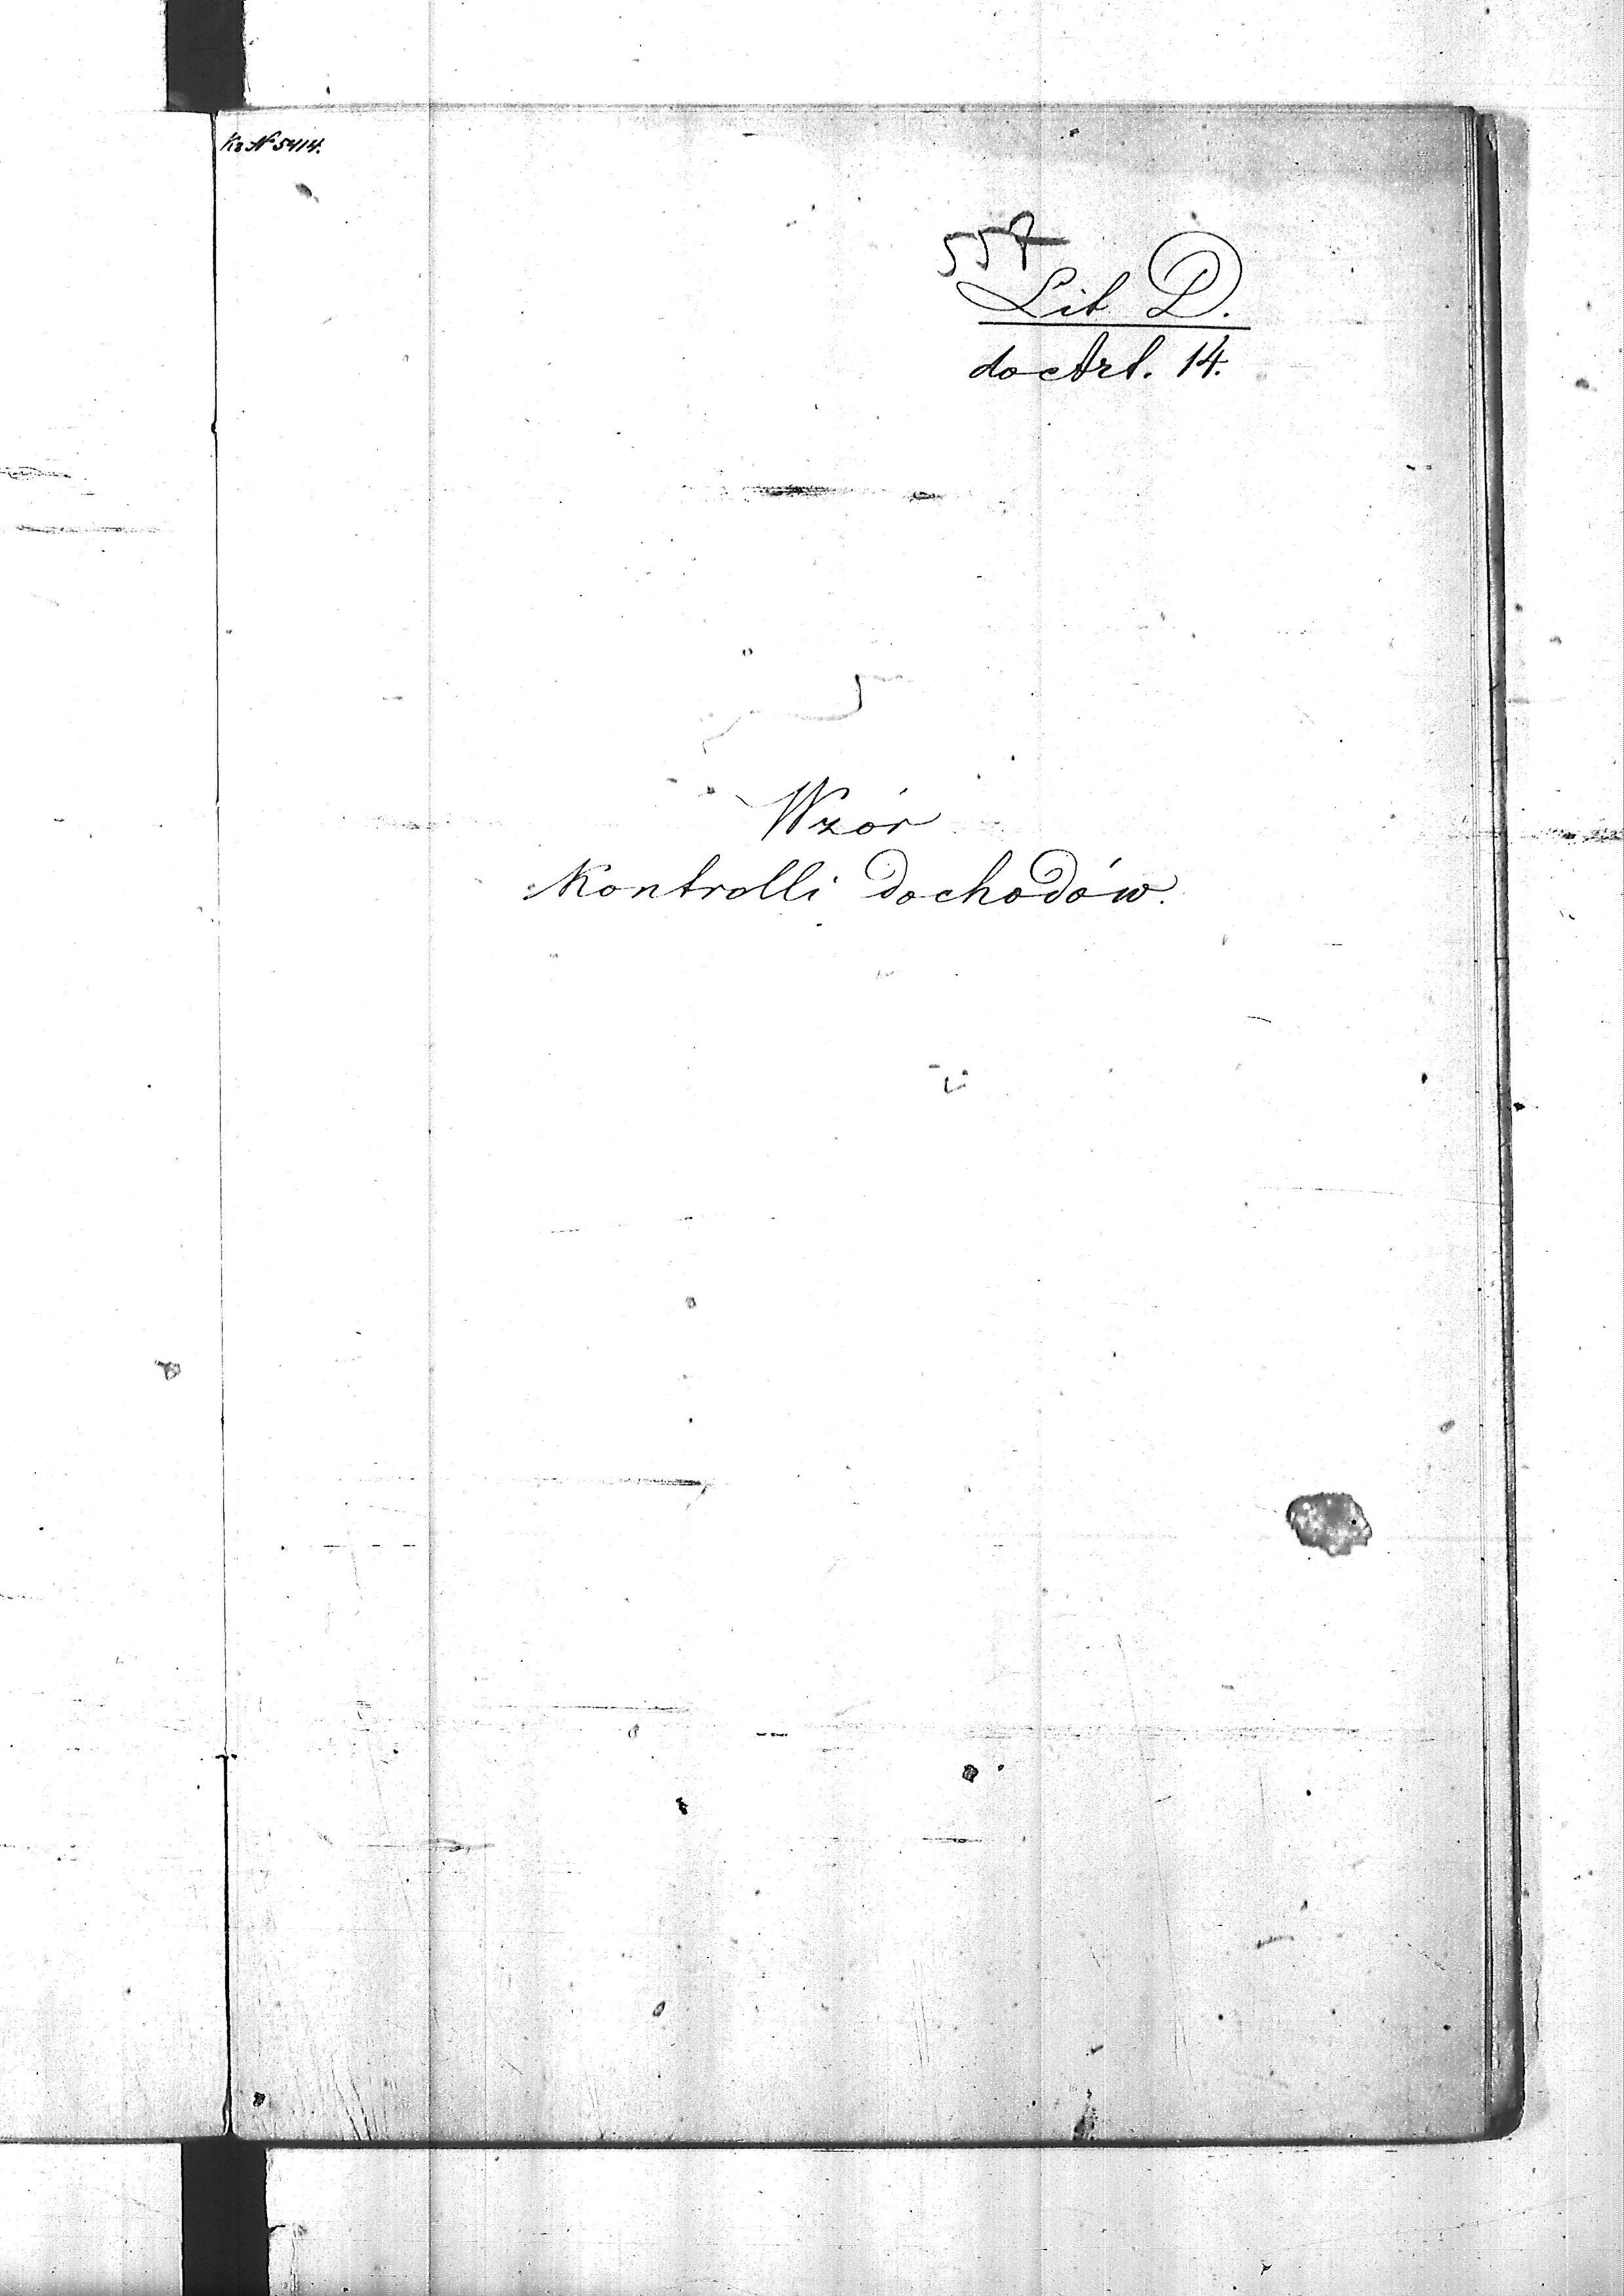 Kz N 5414.
557
Lit D.
do Art. 14.
Wzór
Kontrolli dochodów.